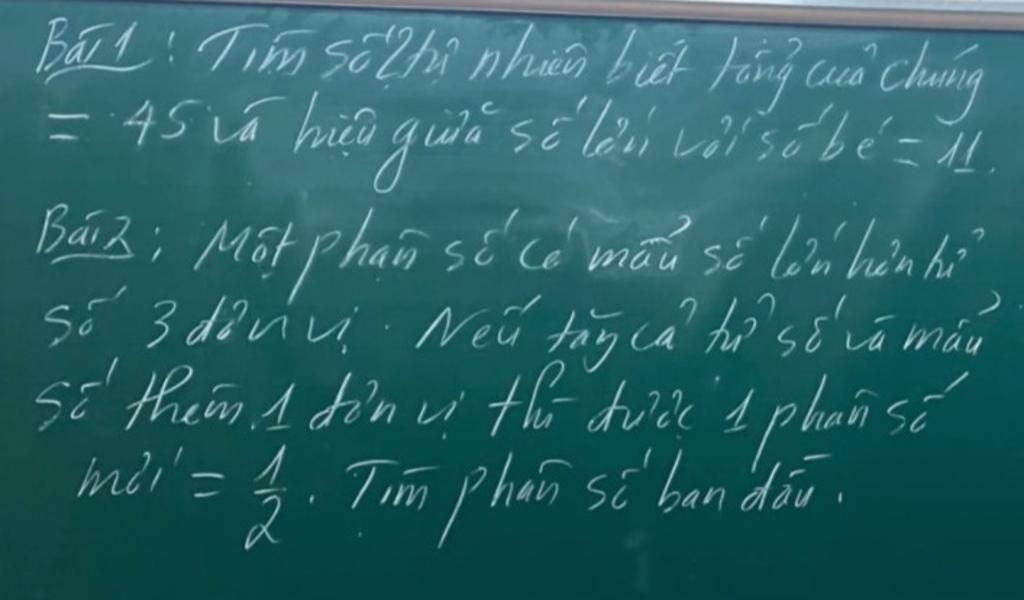 Bài 1 : Tìm số 2 tự nhiên biết tổng của chúng
= 45 và hiệu giữa số lớn với số bé = 11.
Bài 2 : Một phân số có mẫu số lớn hơn tử
số 3 đơn vị. Nếu tăng cả tử số và mẫu
số thêm 1 đơn vị thì được 1 phân số
mới = 1/2. Tìm phân số ban đầu.